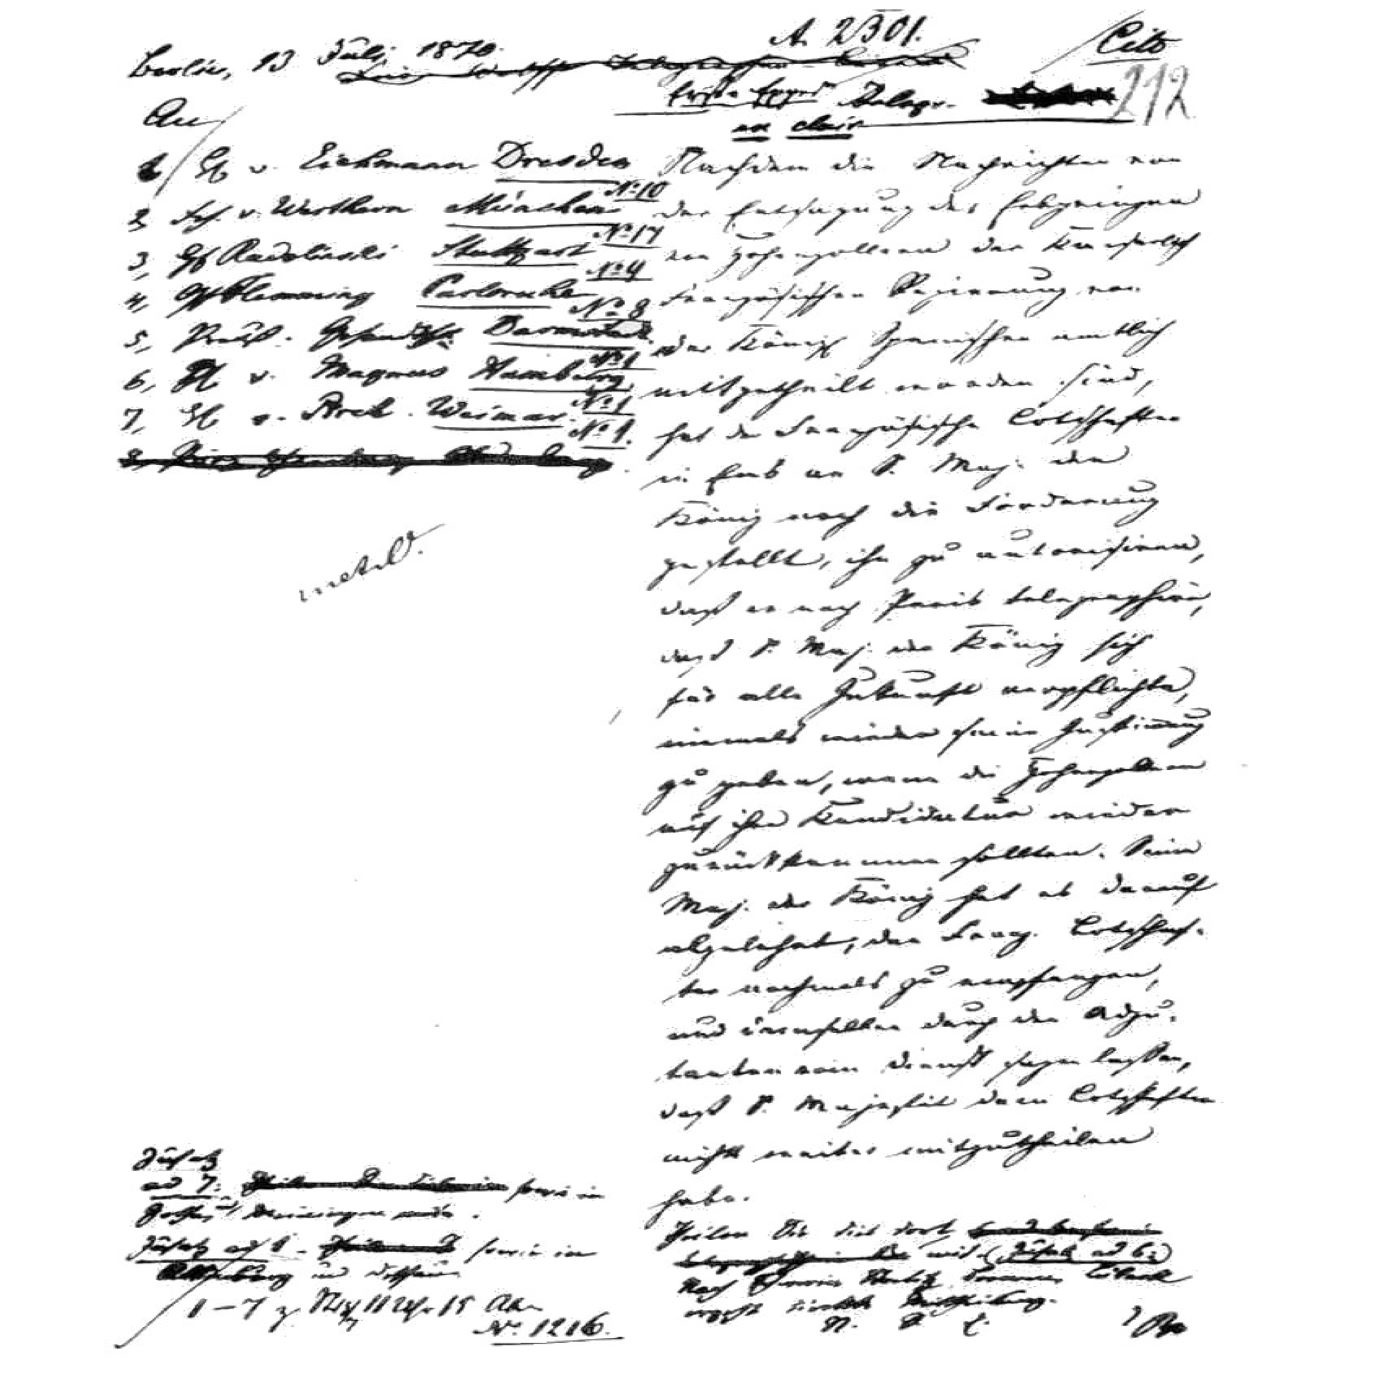 A. 2301.
Cito
Berlin, 13 Juli 1870.
212
Telegr.
en clair
An
1 H v. Eichmann Dresden
No 10
2, Frh. v. Werthern München
No 17
3, Gf Radolinski Stuttgart
No 4
4, Gf Flemming Carlsruhe
No 8
5, Preuß. Gesandtsch. Darmstadt
No 1
6, H v. Magnus Hamburg
No 1
7, H v. Weimar.
No 1.
Nachdem die Nachrichten von
der Entsagung des Erbprinzen
von Hohenzollern der Kaiserlich
Französischen Regierung von
der Königl Spanischen amtlich
mitgetheilt worden sind,
hat der Französische Botschafter
in Ems an S. Maj. den
König noch die Forderung
gestellt, ihn zu autorisiren,
daß er nach Paris telegraphire,
daß S. Maj. der König sich
für alle Zukunft verpflichte,
niemals wieder seine Zustimmung
zu geben, wenn die Hohenzollern
auf ihre Kandidatur wieder
zurückkommen sollten. Seine
Maj. der König hat es darauf
abgelehnt, den Franz. Botschaf-
ter nochmals zu empfangen,
und demselben durch den Adju-
tanten vom Dienst sagen lassen,
daß S. Majestät dem Botschafter
nichts weiter mitzutheilen
habe.
Theilen Sie dies dort
mit (Zusatz ad 6:)
metall.
Zusatz
ad 7: sowie in
Gotha, Meiningen
Zusatz ad sowie in
Altenburg und Dessau
1-7 z. Stat 11 Uhr 15 Ab
No 1216.